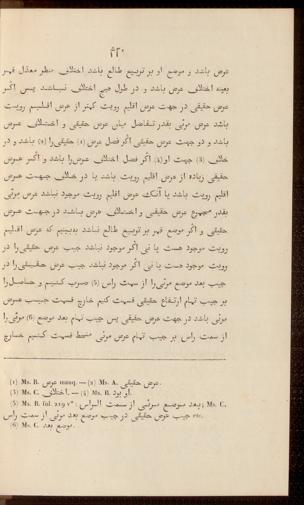 عرض باشد و موضع او بر تربیع طالع باشد اختلاف منظر معدّل قمر
بعینه اختلاف عرض باشد و در طول هیچ اختلاف نباشد پس اگر
عرض حقیقی در جهت عرض اقلیم رویت کمتر از عرض اقلیم رویت
باشد عرض مرئی بقدر تفاضل میان عرض حقیقی و اختلاف عرض
باشد و در جهت عرض حقیقی اگر فضل عرض (1) حقیقی را (2) باشد و در
خلاف (3) جهت او (4) اگر فضل اختلاف عرض را باشد و اگر عرض
حقیقی زیاده از عرض اقلیم رویت باشد یا در خلاف جهت عرض
اقلیم رویت باشد یا آنک عرض اقلیم رویت موجود نباشد عرض مرئی
بقدر مجموع عرض حقیقی و اختلاف عرض باشد در جهت عرض
حقیقی و اگر موضع قمر بر تربیع طالع نباشد ببینیم که عرض اقلیم
رویت موجود هست یا نی اگر موجود نباشد جیب عرض حقیقی را در
جیب بعد موضع مرئی را از سمت راس (5) ضرب کنیم و حاصل را
بر جیب تمام ارتفاع حقیقی قسمت کنیم خارج قسمت جیب عرض
مرئی باشد در جهت عرض حقیقی پس جیب تمام بعد موضع (6) مرئی را
از سمت راس بر جیب تمام عرض مرئی منحط قسمت کنیم خارج
(1) Ms. B. عرض manq. — (2) Ms. A. عرض حقیقی.
(3) Ms. C. اختلاف. — (4) Ms. B. او بود.
(5) Ms. B. fol. 219 v°: بعد موضع مرئی از سمت الراس; Ms. C.
جیب عرض حقیقی در جیب موضع بعد مرئی از سمت راس etc.
(6) Ms. C. موضع بعد.